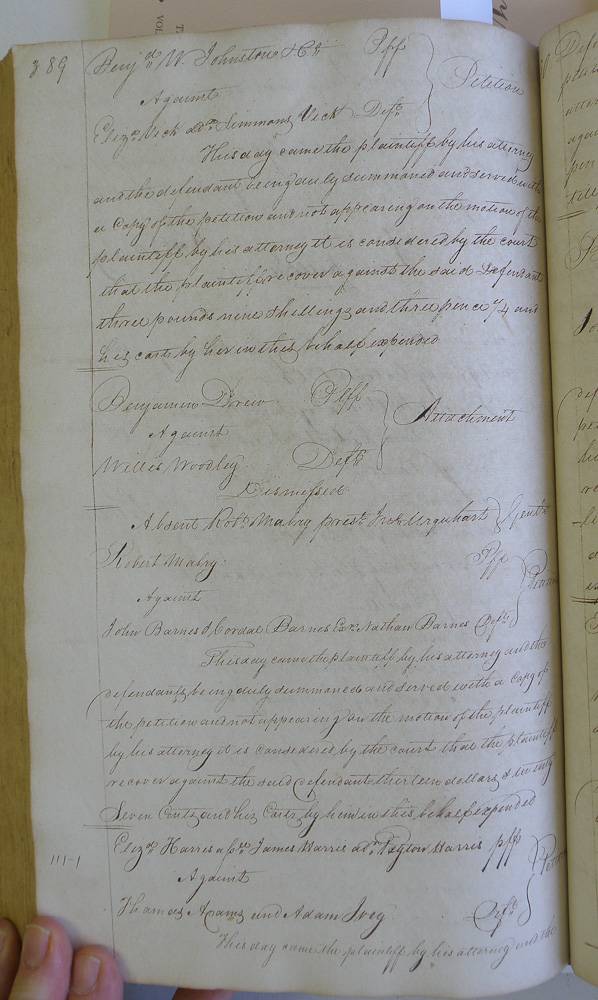 389
Benj.n W. Johnston & Co. Pff
Against
Petition
Eliz.a Vick adx. Simmons Vick Deft.
This day came the plaintiff by his attorney
and the defendant being duly summoned and served with
a Copy of the petition and not appearing on the motion of the
plaintiff by his attorney It is considered by the court
that the plaintiff recover against the said Defendant
three pounds nine shillings and three pence 1/4 and
his costs by her in this behalf expended
Benjamin Drew Plff
Against
Attachment
Willis Woodley Deft.
Dismissed
Absent Robt. Mabry prest. Jno. Urquhart Gent.
Robert Mabry Pff
Against
John Barnes & Cordal Barnes Exr. Nathan Barnes Defts.
This day came the plaintiff by his attorney and the
defendants being duly summoned and served with a Copy of
the petition and not appearing on the motion of the plaintiff
by his attorney it is considered by the court that the plaintiff
recover against the said defendant thirteen dollars & twenty
Seven Cents and his Costs by him in this behalf expended
111-1
James Harris Harris pff
Against
Thomas Adams and Adam Ivey Deft.
This day came the plaintiff by his attorney and the